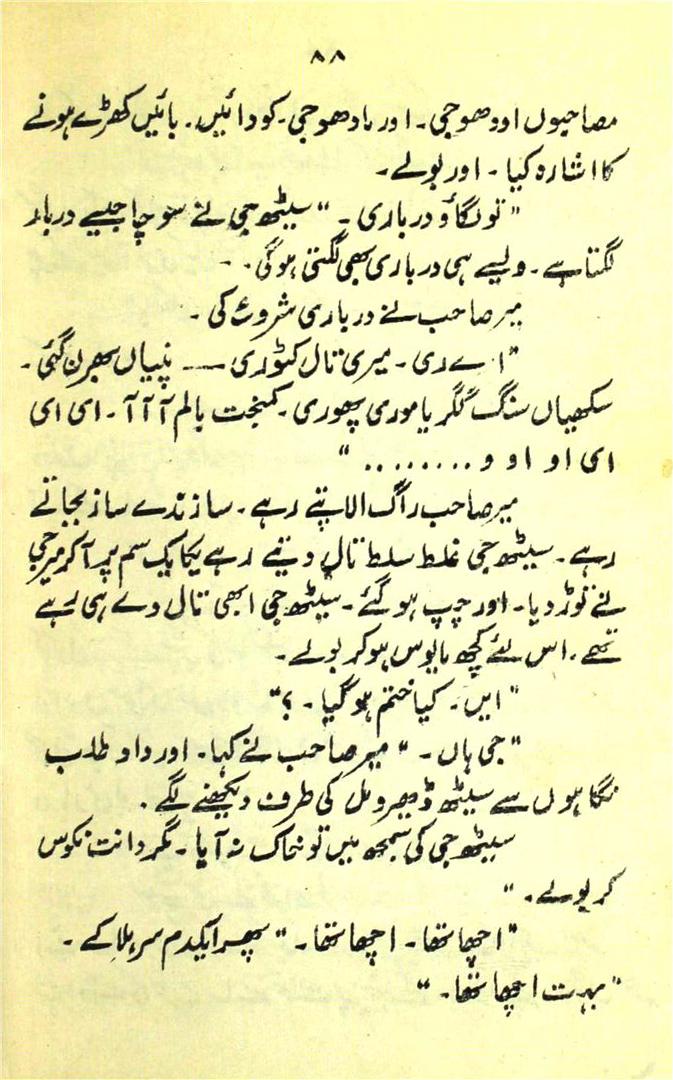 ۸۸
مصاحبوں اودھوجی۔ اور مادھوجی۔ کو دائیں۔ بائیں کھڑے ہونے
کا اشارہ کیا۔ اور بولے۔
"تو لگاؤ درباری۔" سیٹھ جی نے سوچا جیسے دربار
لگتا ہے۔ ویسے ہی درباری بھی لگتی ہوگی۔ ۔
میر صاحب نے درباری شروع کی۔
"اے ری۔ میری تال کٹوری —— پنیاں بھرن گئی۔
سکھیاں سنگ گگریا موری پھوری۔ کمبخت بالم آ آ آ۔ ای ای
ای او او و ........ "
میر صاحب راگ الاپتے رہے۔ سازندے ساز بجاتے
رہے۔ سیٹھ جی غلط سلط تال دیتے رہے یکایک سم پر آکر میر جی
نے توڑ دیا۔ اور چپ ہوگئے۔ سیٹھ جی ابھی تال دے ہی رہے
تھے۔ اس لئے کچھ مایوس ہوکر بولے۔
"ایں۔ کیا ختم ہوگیا۔ ؟"
"جی ہاں۔" میر صاحب نے کہا۔ اور داد طلب
نگاہوں سے سیٹھ ڈھیرومل کی طرف دیکھنے لگے۔
سیٹھ جی کی سمجھ میں تو خاک نہ آیا۔ مگر دانت نکوس
کر بولے۔ "
"اچھا تھا۔ اچھا تھا۔" پھر ایکدم سر ہلا کے۔
"بہت اچھا تھا۔"